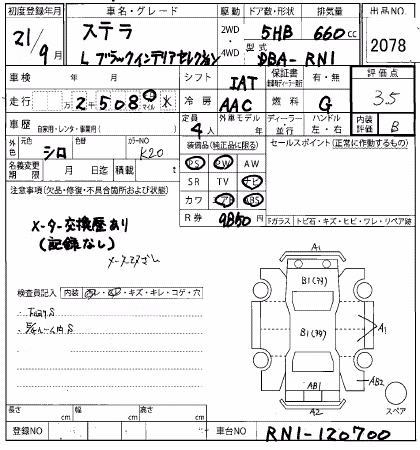 初度登録年月 車名・グレード 駆動 ドア数・形状 排気量 出品NO
21/9月 ステラ 2WD 5HB 660cc 2078
L ブラックインテリアセレクション 4WD 型式 DBA-RN1
車検 年 月 シフト IAT 保証書 有・無 評価点
走行 万2千508 マイル X 冷房 AAC 燃料 G 3.5
車歴 自家用・レンタ・事業用( ) 定員 4人 外車モデル ディーラー・並行 ハンドル 左・右 内装評価 B
外色 元色 シロ 色替 カラーNO K20 装備品(純正品に限る) セールスポイント(正常に動作するもの)
PS PW AW
名義変更期限 月 日迄 積載 t SR TV ナビ
注意事項(欠品・修復・不具合箇所および状態) カワ エアB ABS
メーター交換歴あり R券 9850円 Fガラス トビ石・キズ・ヒビ・ワレ・リペア跡
(記録なし)
A1
B1
検査員記入 内装 ・キズ・キレ・コゲ・穴
B1
A1
AB1 AB2
A2 スペア
長さ cm 幅 cm 高さ cm
登録NO 車台NO RN1-120700